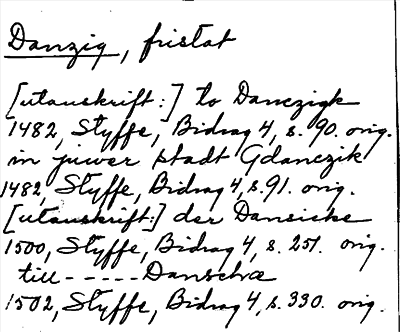 Danzig, fristat
[utanskrift:] to Danczigk
1482, Styffe, Bidrag 4, s. 90. orig.
in juwer stadt Gdanczik
1482, Styffe, Bidrag 4, s. 91. orig.
[utanskrift:] der Dansicke
1500, Styffe, Bidrag 4, s. 251. orig.
till - - - - - Danschæ
1502, Styffe, Bidrag 4, s. 330. orig.